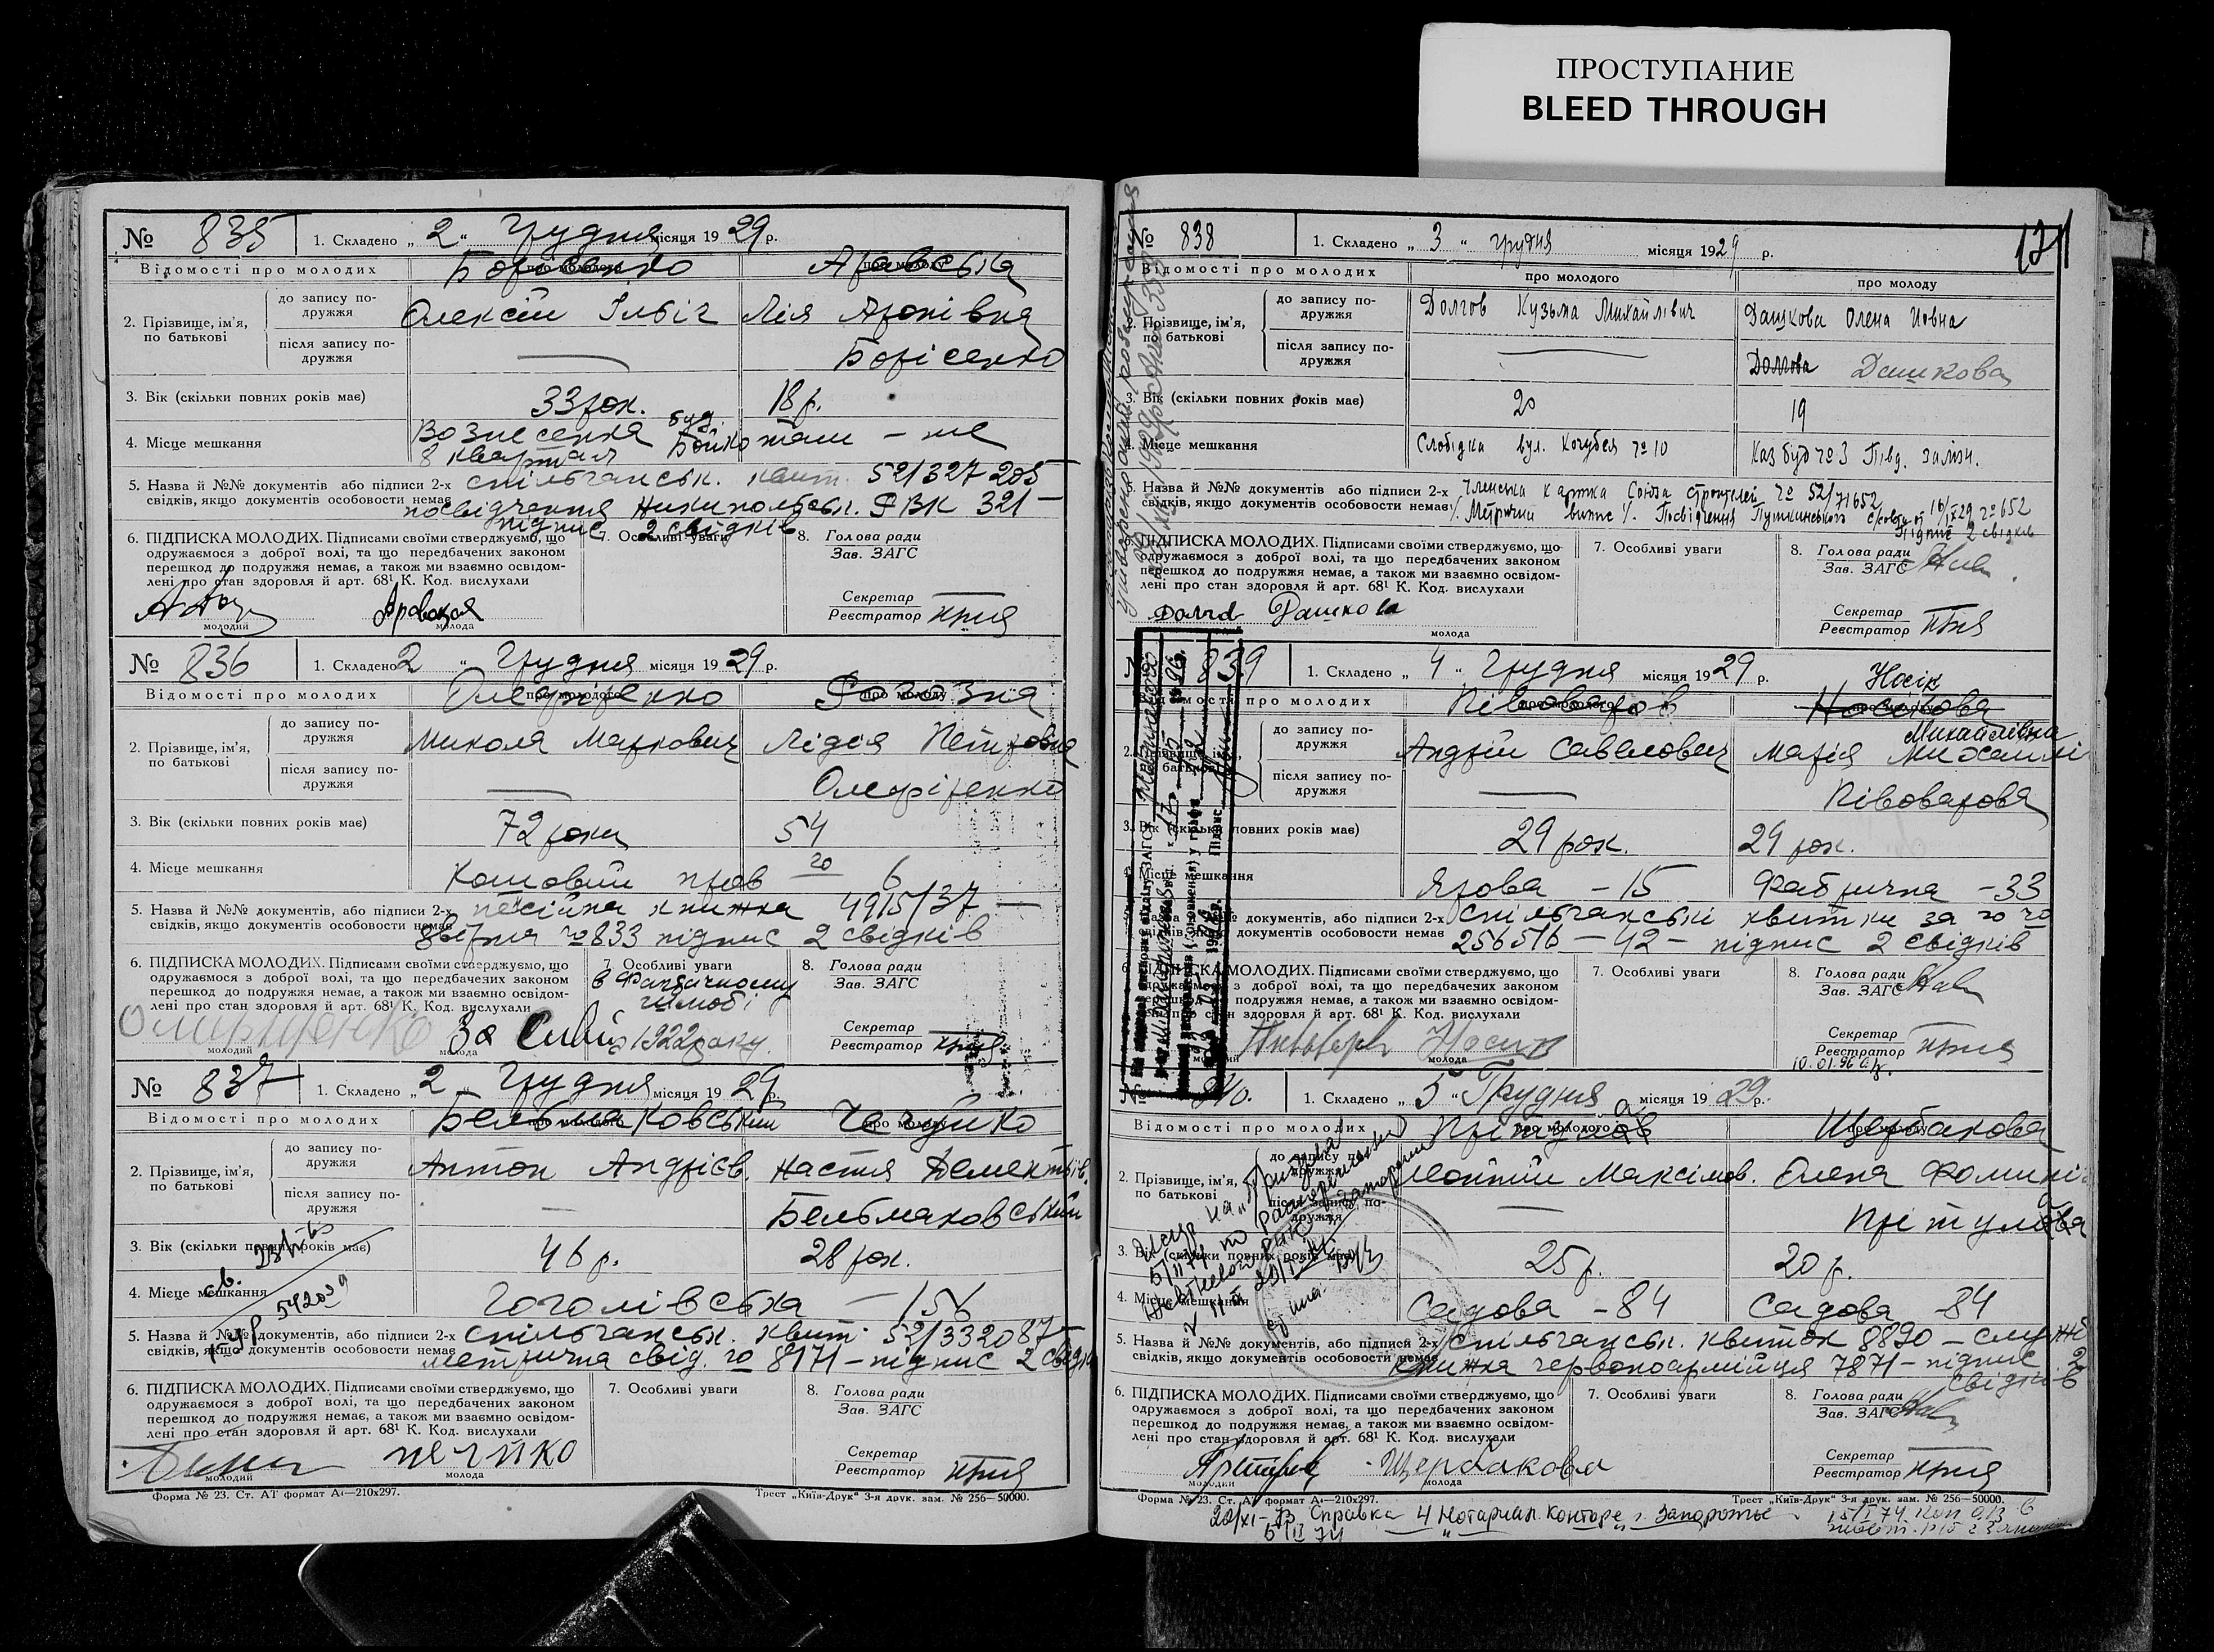 ПРОСТУПАНИЕ
BLEED THROUGH
№ 835 1. Складено „ 2 “ Грудня місяця 19 29 р.
Відомості про молодих про молодого про молоду
Борісенко Аравська
2. Прізвище, ім’я, по батькові
до запису подружжя
Олексій Ілліч Лія Аронівна
після запису подружжя
— Борісенко
3. Вік (скільки повних років має) 33 рок. 18 р.
4. Місце мешкання Вознесенка буд. Бойко там – же
8 квартал
5. Назва й №№ документів або підписи 2-х спільчанськ. квит. 52/327205
свідків, якщо документів особовости немає посвідчення РВК 321 –
підпис 2 свідків
6. ПІДПИСКА МОЛОДИХ. Підписами своїми стверджуємо, що
одружаємося з доброї волі, та що передбачених законом
перешкод до подружжя немає, а також ми взаємно освідом-
лені про стан здоровля й арт. 68¹ К. Код. вислухали
7. Особливі уваги
8. Голова ради
Зав. ЗАГС
Секретар
Реєстратор
молодий молода
№ 836 1. Складено 2 “ Грудня місяця 19 29 р.
Відомості про молодих про молодого про молоду
2. Прізвище, ім’я, по батькові
до запису подружжя
Микола Маркович Лідія Петровна
після запису подружжя
—
3. Вік (скільки повних років має) 72 роки 54
4. Місце мешкання Кошовий пров 20 6
5. Назва й №№ документів, або підписи 2-х книжка 4915/37 —
свідків, якщо документів особовости немає №833 підпис 2 свідків
6. ПІДПИСКА МОЛОДИХ. Підписами своїми стверджуємо, що
одружаємося з доброї волі, та що передбачених законом
перешкод до подружжя немає, а також ми взаємно освідом-
лені про стан здоровля й арт. 68¹ К. Код. вислухали
7. Особливі уваги
в фактичному
шлюбі
з 1922 року.
8. Голова ради
Зав. ЗАГС
Секретар
Реєстратор
молодий молода
№ 837 1. Складено „ 2 “ Грудня місяця 19 29 р.
Відомості про молодих про молодого про молоду
Бельмаковський Чечуйко
2. Прізвище, ім’я, по батькові
до запису подружжя
Антон Андрієв. Настя Дементьів.
після запису подружжя
— Бельмаковський
3. Вік (скільки повних років має) 46 р. 28 рок.
4. Місце мешкання Гоголівська – 156
5. Назва й №№ документів, або підписи 2-х спільчанськ. квит. 52/332087 –
свідків, якщо документів особовости немає метрична свід. № 8171 – підпис 2 свідків
6. ПІДПИСКА МОЛОДИХ. Підписами своїми стверджуємо, що
одружаємося з доброї волі, та що передбачених законом
перешкод до подружжя немає, а також ми взаємно освідом-
лені про стан здоровля й арт. 68¹ К. Код. вислухали
7. Особливі уваги
8. Голова ради
Зав. ЗАГС
Секретар
Реєстратор
молодий молода
Форма № 23. Ст. АТ формат А₄—210х297. Трест „Київ-Друк“ 3-я друк. зам. № 256—50000.
171
№ 838 1. Складено „ 3 “ грудня місяця 1929 р.
Відомості про молодих про молодого про молоду
2. Прізвище, ім’я, по батькові
до запису подружжя
Долгов Кузьма Михайлівич Дашкова Олена Ивна
після запису подружжя
— Долгова Дашкова
3. Вік (скільки повних років має) 20 19
4. Місце мешкання Слобідка вул. Кочубея № 10 Каз буд № 3 Півд. залізн.
5. Назва й №№ документів або підписи 2-х Членська картка Союза строителей № 52/71652
свідків, якщо документів особовости немає Метричний випис Посвідчення Пушкинського 16/IX29 № 652
Підпис 2 свідків
6. ПІДПИСКА МОЛОДИХ. Підписами своїми стверджуємо, що
одружаємося з доброї волі, та що передбачених законом
перешкод до подружжя немає, а також ми взаємно освідом-
лені про стан здоровля й арт. 68¹ К. Код. вислухали
7. Особливі уваги
8. Голова ради
Зав. ЗАГС
Секретар
Реєстратор
Долгов Дашкова
молода
839 1. Складено „ 4 “ Грудня місяця 19 29 р.
Носік
Відомості про молодих про молодого про молоду
Півоваров Носікова
Михайлівна
2. Прізвище, ім’я, по батькові
до запису подружжя
Андрій Савелович Марія
після запису подружжя
— Півоварова
3. Вік (скільки повних років має) 29 рок. 29 рок.
4. Місце мешкання Ярова – 15 Фабрична – 33
5. Назва й №№ документів, або підписи 2-х спільчанські квитки за № №
свідків, якщо документів особовости немає 256516 – 42 – підпис 2 свідків
6. ПІДПИСКА МОЛОДИХ. Підписами своїми стверджуємо, що
одружаємося з доброї волі, та що передбачених законом
перешкод до подружжя немає, а також ми взаємно освідом-
лені про стан здоровля й арт. 68¹ К. Код. вислухали
7. Особливі уваги
8. Голова ради
Зав. ЗАГС
Секретар
Реєстратор
молода
№ 840. 1. Складено „ 5 “ Грудня місяця 19 29 р.
Відомості про молодих про молодого про молоду
Щербакова
2. Прізвище, ім’я, по батькові
до запису подружжя
Максімов. Олена
після запису подружжя
— Прітулова
3. Вік (скільки повних років має) 25 р. 20 р.
4. Місце мешкання Садова – 84 Садова – 84
5. Назва й №№ документів, або підписи 2-х спільчанськ. квиток 8890 –
свідків, якщо документів особовости немає книжка червоноармійця 7871 – підпис 2
свідків
6. ПІДПИСКА МОЛОДИХ. Підписами своїми стверджуємо, що
одружаємося з доброї волі, та що передбачених законом
перешкод до подружжя немає, а також ми взаємно освідом-
лені про стан здоровля й арт. 68¹ К. Код. вислухали
7. Особливі уваги
8. Голова ради
Зав. ЗАГС
Секретар
Реєстратор
Щербакова
молодий молода
Форма № 23. Ст. АТ формат А₄—210х297. Трест „Київ-Друк“ 3-я друк. зам. № 256—50000.
22/XI-73 Справка 4 Нотариал. Конторе г. Запорожье
5/II 74